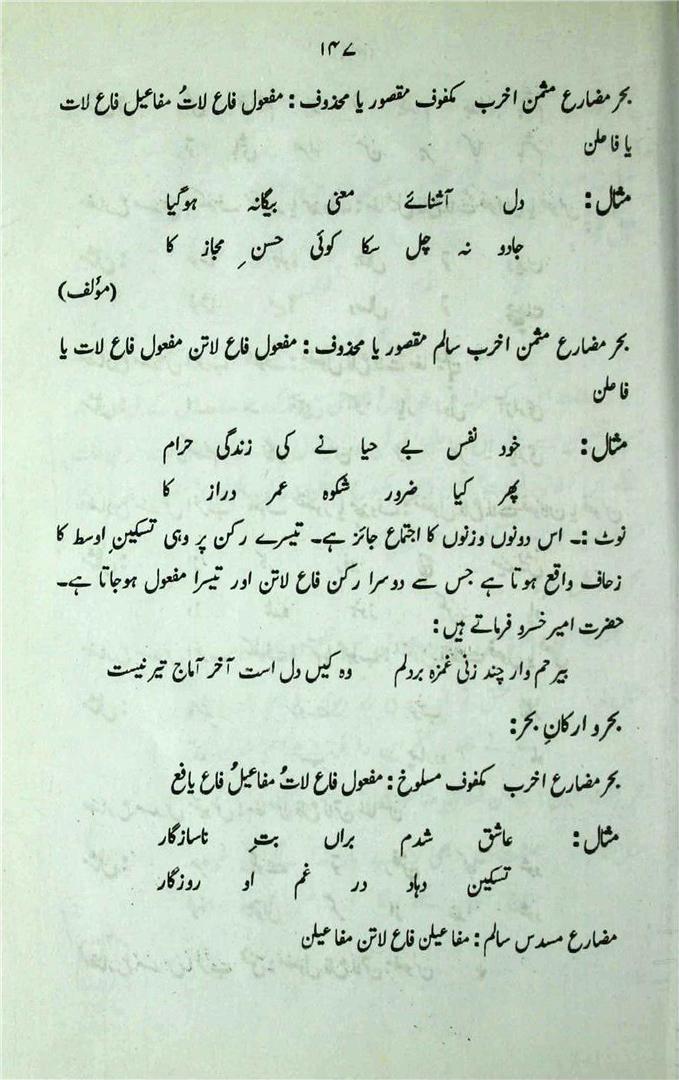 ۱۴۷
بحر مضارع مثمن اخرب مکفوف مقصور یا محذوف : مفعول فاع لاتُ مفاعیل فاع لات
یا فاعلن
مثال : دل آشنائے معنی بیگانہ ہوگیا
جادو نہ چل سکا کوئی حسنِ مجاز کا
(مؤلف)
بحر مضارع مثمن اخرب سالم مقصور یا محذوف : مفعول فاع لاتن مفعول فاع لات یا
فاعلن
مثال : خود نفس بے حیا نے کی زندگی حرام
پھر کیا ضرور شکوہ عمر دراز کا
نوٹ :۔ اس دونوں وزنوں کا اجتماع جائز ہے۔ تیسرے رکن پر وہی تسکینِ اوسط کا
زحاف واقع ہوتا ہے جس سے دوسرا رکن فاع لاتن اور تیسرا مفعول ہوجاتا ہے۔
حضرت امیر خسرو فرماتے ہیں :
بیرحم وار چند زنی غمزہ بردلم وہ کیں دل است آخر آماج تیر نیست
بحر و ارکانِ بحر :
بحر مضارع اخرب مکفوف مسلوخ : مفعول فاع لاتُ مفاعیلُ فاع یا فع
مثال : عاشق شدم براں بتِ ناسازگار
تسکین دہاد در غم او روزگار
مضارع مسدس سالم : مفاعیلن فاع لاتن مفاعیلن